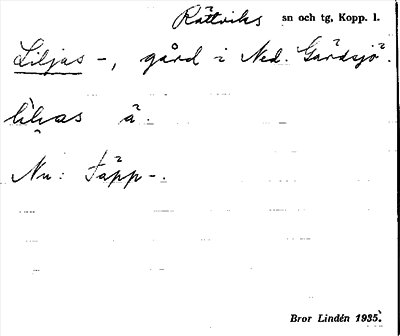 Rättviks sn och tg, Kopp. l.
Liljas -, gård i Ned. Gärdsjö.
lìlvas å.
Nu: Täpp-.
Bror Lindén 1935.